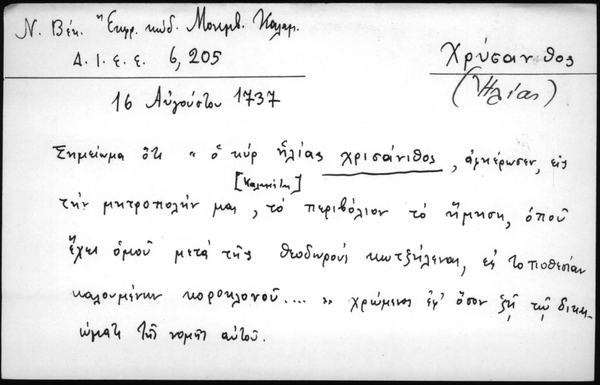 Ν. Βέη. "Εκφρ. κώδ. Μονεμβ. Καλαμ.
Δ. Ι. Ε. Ε. 6, 205
Χρύσανθος
(Ἠλίας)
16 Αὐγούστου 1737
Σημείωμα ὅτι " ὁ κύρ ἠλίας χρισάνιθος, ἀφιέρωσεν, εις
[Καλαμάτας]
τήν μητροπολήν μας, τὸ περιβόλιον τὸ ἥμηση, ὁποῦ
ἔχει ὁμοῦ μετά τῆς θεοδηροῦς κωτζήλενας, εἰς τοποθεσίαν
καλουμένην κοροκλονοῦ.... " χρώμενος ἐφ' ὅσον ζῇ τῷ δικαι-
ώματι τῆς νομῆς αὐτοῦ.